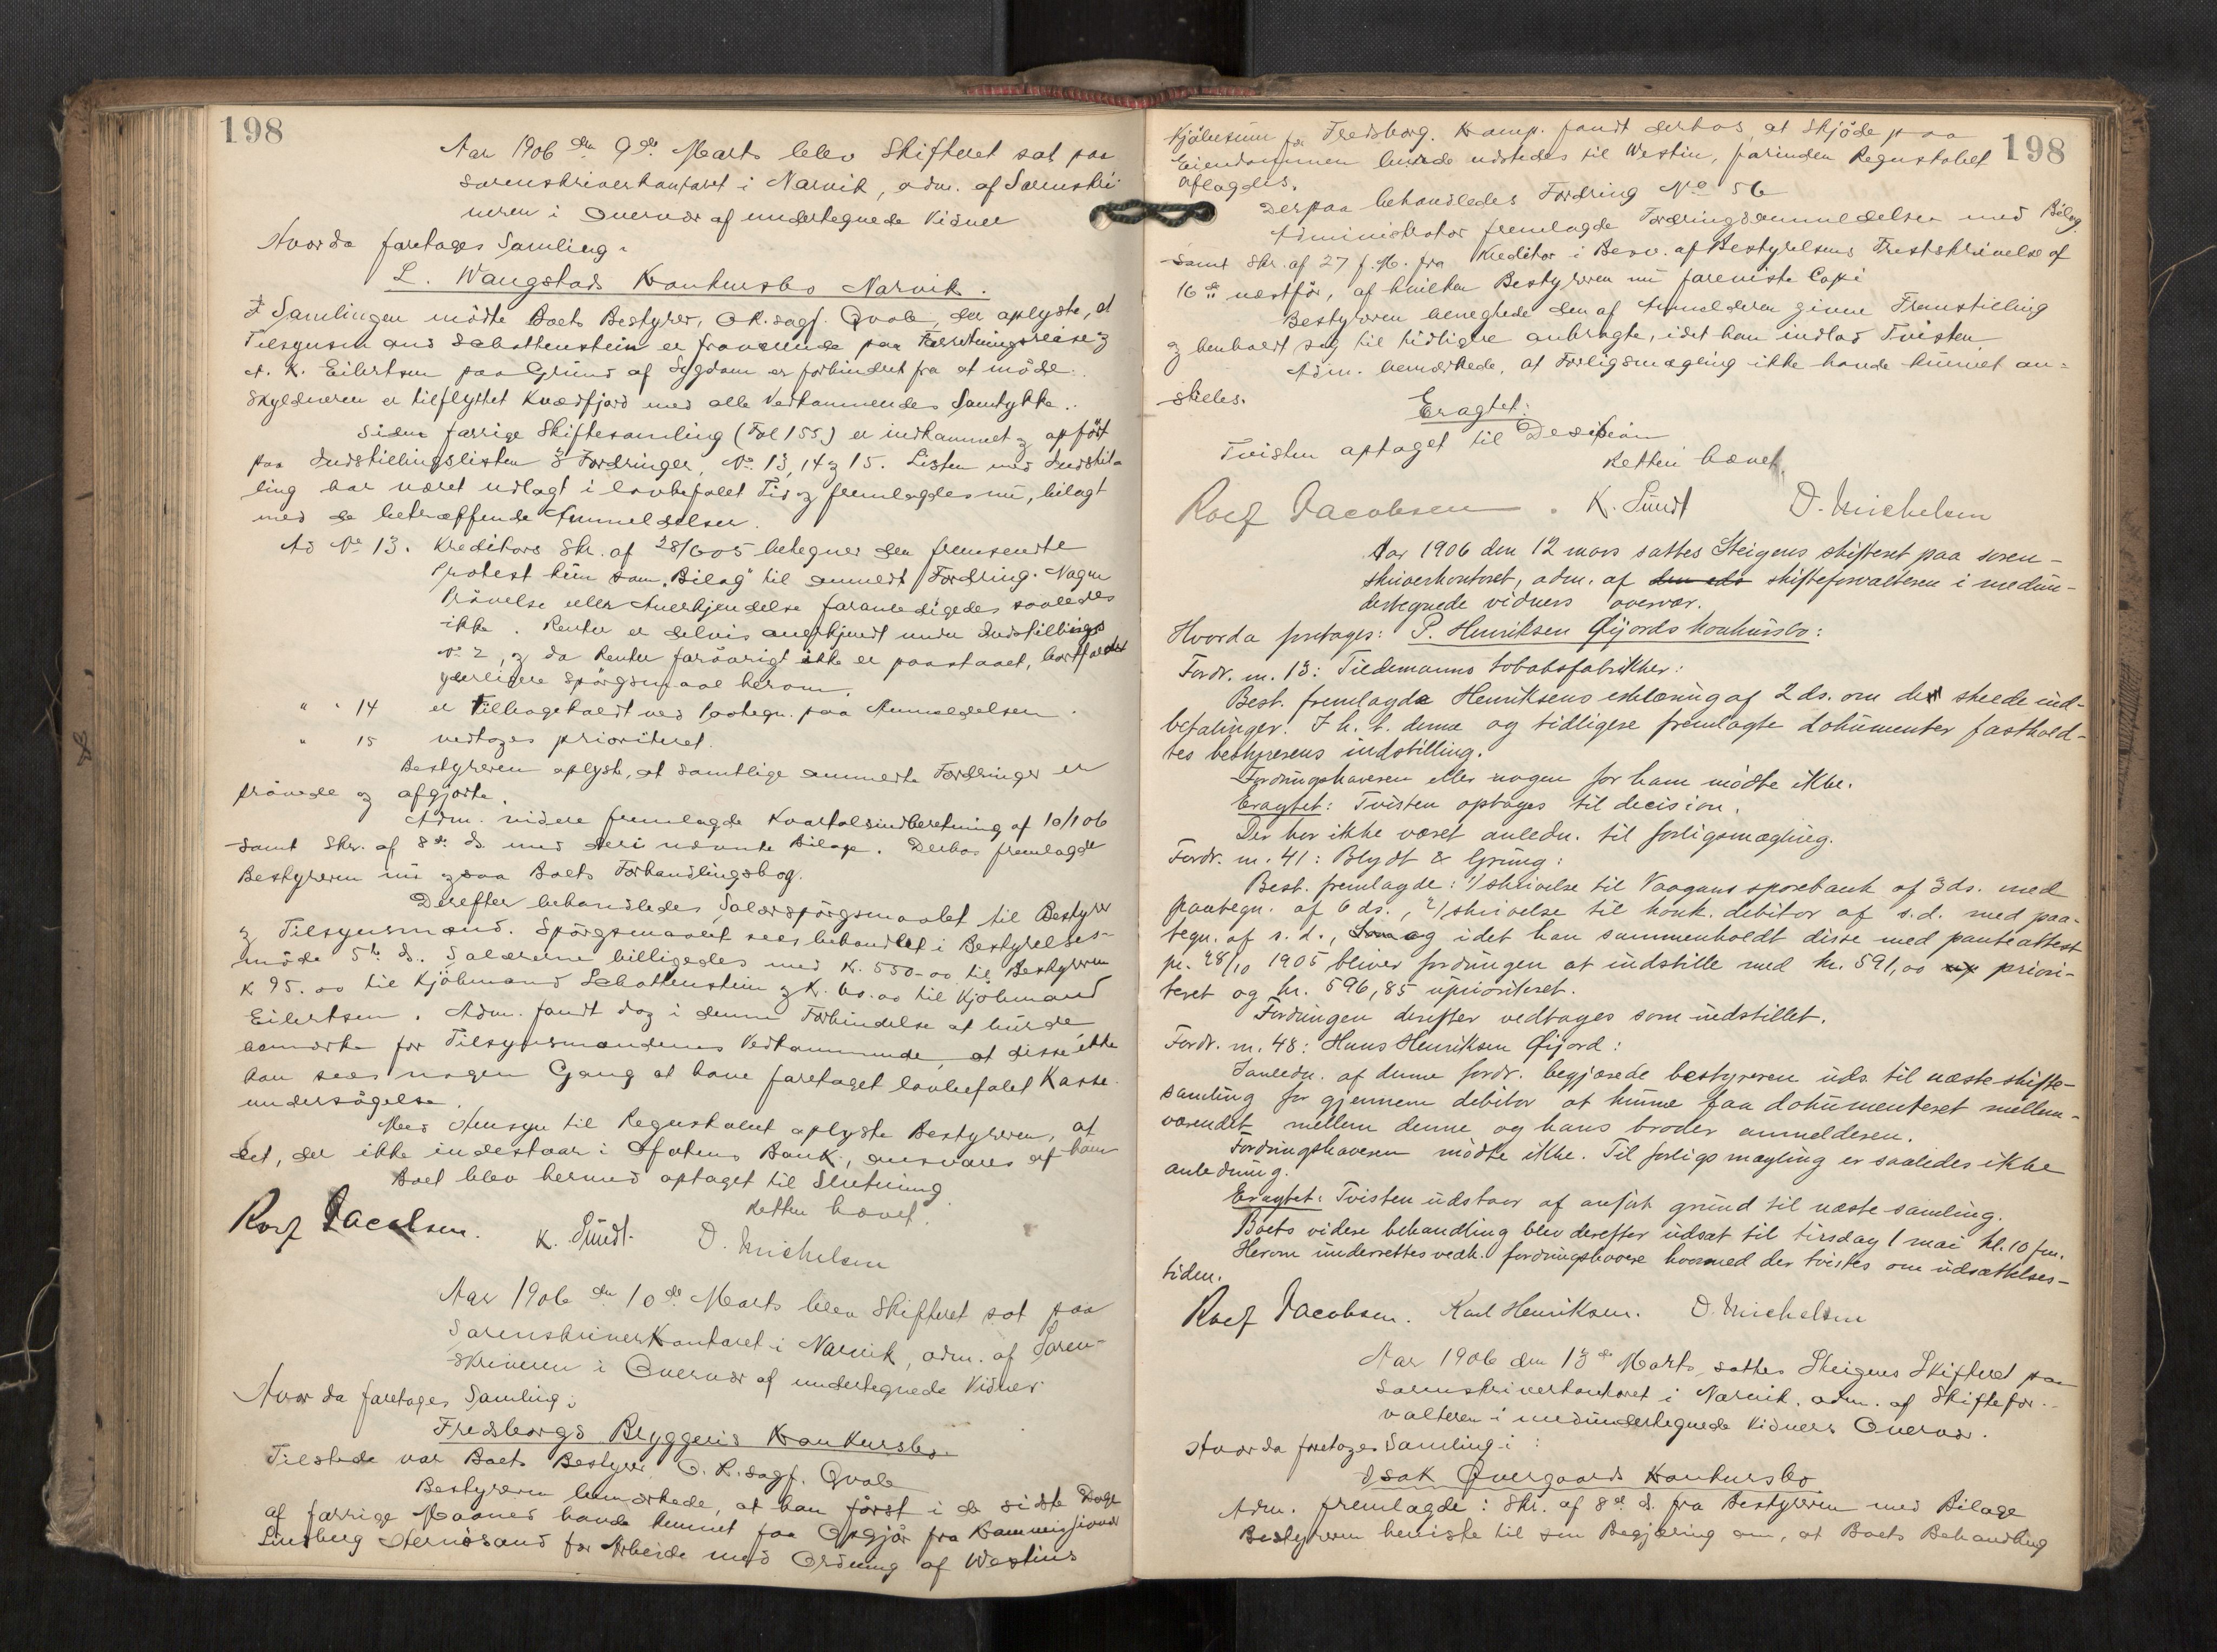 198
Aar 1906 den 9de Marts blev Skifteret sat paa
Sorenskriverkontoret i Narvik, adm. af Sorenskri-
veren i Overvær af undertegnede Vidner
Hvorda foretoges Samling i
L. Wangstads Konkursbo Narvik.
I Samlingen mødte Boets Bestyrer, O.R.sagf. Qvale, der oplyste, at
Tilsynsmand Schottenstein er fraværende paa Forretningsreise og
A. K. Eilertsen paa Grund af Sygdom er forhindret fra at møde.
Skyldneren er tilflyttet Kvædfjord med alle Vedkommendes Samtykke.
Siden forrige Skiftesamling (Fol 155) er indkommet og opført
paa Indstillingslisten 3 Fordringer, No 13, 14 og 15. Listen med Indstil-
ling har været udlagt i lovbefalet Tid og fremlagdes nu, bilagt
med de betræffende Anmeldelser.
Ad No 13. Kreditors Skr. af 28/6 05 betegner den fremsendte
Protest kun som "Bilag" til anmeldt Fordring. Nogen
Prøvelse eller Anerkjendelse foranledigedes saaledes
ikke. Renter er delvis anerkjendt under Indstillings
No 2, og da Renter forøvrigt ikke er paastaaet, bortfalder
yderligere Spørgsmaal herom.
" " 14 er tilbageholdt ved Paategn. paa Anmeldelsen.
" 15 vedtoges prioriteret.
Bestyreren oplyste, at samtlige anmeldte Fordringer er
prøvede og afgjorte.
Adm. videre fremlagde Kvartalsindberetning af 10/1 06
samt Skr. af 8de ds. med deri nævnte Bilage. Derhos fremlagde
Bestyreren nu ogsaa Boets Forhandlingsbog.
Derefter behandledes Salærspørgsmaalet til Bestyrer
og Tilsynsmænd. Spørgsmaalet sees behandlet i Bestyrelses-
møde 5te ds. Salærerne billigedes med K. 550-00 til Bestyreren
K 95.00 til Kjøbmand Schottenstein og K. 60.00 til Kjøbmand
Eilertsen. Adm. fandt dog i denne Forbindelse at burde
bemærke for Tilsynsmændenes Vedkommende, at disse ikke
kan sees nogen Gang at have foretaget lovbefalet Kasse-
undersøgelse.
Med Hensyn til Regnskabet oplyste Bestyreren, at
det, der ikke indestaar i Ofotens Bank, ansvares af ham
Boet blev hermed optaget til Slutning
Retten hævet.
Rolf Jacobsen. K. Sundt. O. Michelsen
Aar 1906 den 10de Marts blev Skifteret sat paa
Sorenskriverkontoret i Narvik, adm. af Soren-
skriveren i Overvær af undertegnede Vidner
Hvorda foretoges Samling i
Fredsborgs Bryggeris Konkursbo.
Tilstede var Boets Bestyrer O.R.sagf. Qvale
Bestyreren bemærkede, at han først i de sidste Dage
af forrige Maaned havde kunnet faa Opgjør fra Kommissionær
Lindberg Hernøsand for Arbeide med Ordning af Westins
198
Kjøbesum for Fredsborg. Komp. fandt derhos, at Skjøde paa
Eiendommen burde udstedes til Westin, forinden Regnskabet
aflagdes.
Derpaa behandledes Fordring No 56
Administrator fremlagde Fordringsanmeldelsen med Bilag
samt Skr. af 27 f.M. fra Kreditor i Besv. af Bestyrelsens Tvistskrivelse af
16de næstfør, af hvilken Bestyreren nu foreviste Copi
Bestyreren benegtede den af Anmelderen givne Fremstilling
og henholdt sig til tidligere anbragte, idet han indlod Tvisten.
Adm. bemærkede, at Forligsmægling ikke havde kunnet an-
stilles.
Eragtet:
Tvisten optaget til Decision
Retten hævet
Rolf Jacobsen. K. Sundt O. Michelsen
Aar 1906 den 12 mars sattes Steigens skifteret paa soren-
skriverkontoret, adm. af skifteforvalteren i medun-
dertegnede vidners overvær.
Hvorda foretages: P. Henriksen Øijords konkursbo:
Fordr. nr. 13: Tiedemanns tobaksfabrikker:
Best. fremlagde Henriksens erklæring af 2 ds. om de skeede ind-
betalinger. I h. t. denne og tidligere fremlagte dokumenter fasthold-
tes bestyrerens indstilling.
Fordringshaveren eller nogen for ham mødte ikke.
Eragtet: Tvisten optages til decision.
Der har ikke været anledn. til forligsmægling.
Fordr. nr. 41: Blydt & Grung:
Best. fremlagde: 1/ skrivelse til Vaagans sparebank af 3 ds. med
paategn. af 6 ds., 2/ skrivelse til konk. debitor af s.d. med paa-
tegn. af s. d., og idet han sammenholdt disse med panteattest
pr. 28/10 1905 bliver fordringen at indstille med kr. 591,00 priori-
teret og kr. 596,85 uprioriteret.
Fordringen derefter vedtoges som indstillet.
Fordr. nr. 48: Hans Henriksen Øijord:
I anledn. af denne fordr. begjærede bestyreren uds. til næste skifte-
samling for gjennem debitor at kunne faa dokumenteret mellem-
værendet mellem denne og hans broder anmelderen.
Fordringshaveren mødte ikke. Til forligsmægling er saaledes ikke
anledning.
Eragtet: Tvisten udstaar af anført grund til næste samling.
Boets videre behandling blev derefter udsat til tirsdag 1 mai kl. 10 fm.
Herom underrettes vedk. fordringshavere hvormed der tvistes om udsættelses-
tiden.
Rolf Jacobsen. Karl Henriksen. O. Michelsen
Aar 1906 den 13de Marts sattes Steigens Skifteret paa
Sorenskriverkontoret i Narvik, adm. af Skiftefor-
valteren i medundertegnede Vidners Overvær.
Hvorda foretoges Samling i:
Isak Overgaards Konkursbo
Adm. fremlagde: Skr. af 8de ds. fra Bestyreren med Bilage
Bestyreren henviste til sin Begjæring om, at Boets Behandling